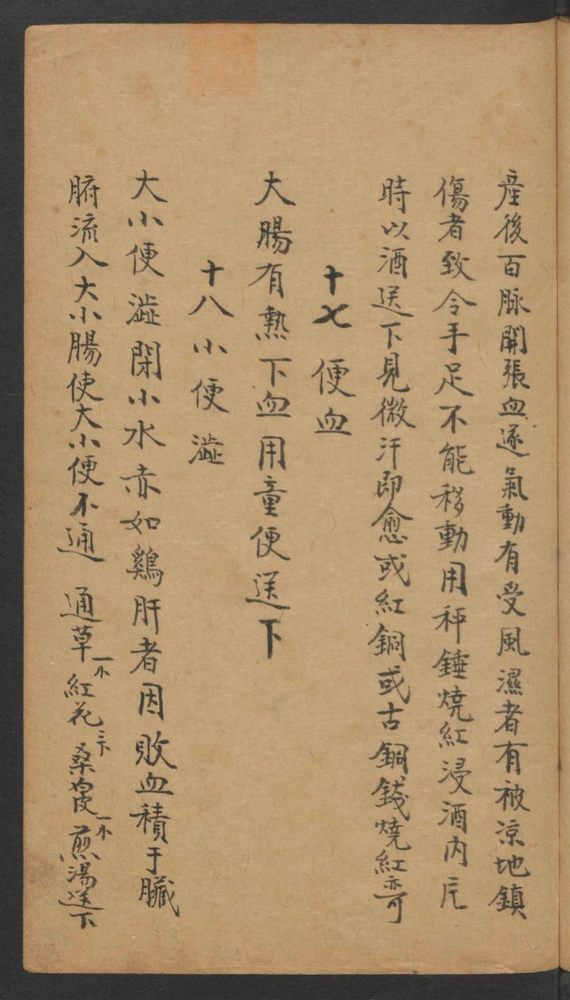 產後百脉開張血遂氣動有受風濕者有被凉地鎮
傷者致令手足不能移動用秤錘燒紅浸酒內
時以酒送下見微汗即愈或紅銅或古銅錢燒紅亦可
十七 便血
大腸有熱下血用童便送下
十八小便澁
大小便澁閉小水赤如鷄肝者因敗血積于臟
腑流入大小腸使大小便不通 通草 紅花 桑 煎湯送下